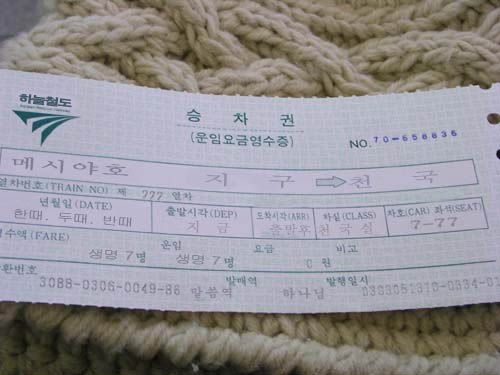 하늘철도
승 차 권
(운임요금영수증)
NO. 70-656836
메시야호 지 구 ⇨ 천 국
열차번호(TRAIN NO) 제 777 열차
년월일(DATE) 출발시각(DEP) 도착시각(ARR) 차실(CLASS) 차호(CAR) 좌석(SEAT)
한때. 두때. 반때 지 금 출발후 천국실 7-77
영수액(FARE) 운임 요금 비고
생명 7명 생명 7명 0 원
환번호 발매역 발행일시
3088-0306-0049-86 말씀역 하나님 0303051370-0334-01